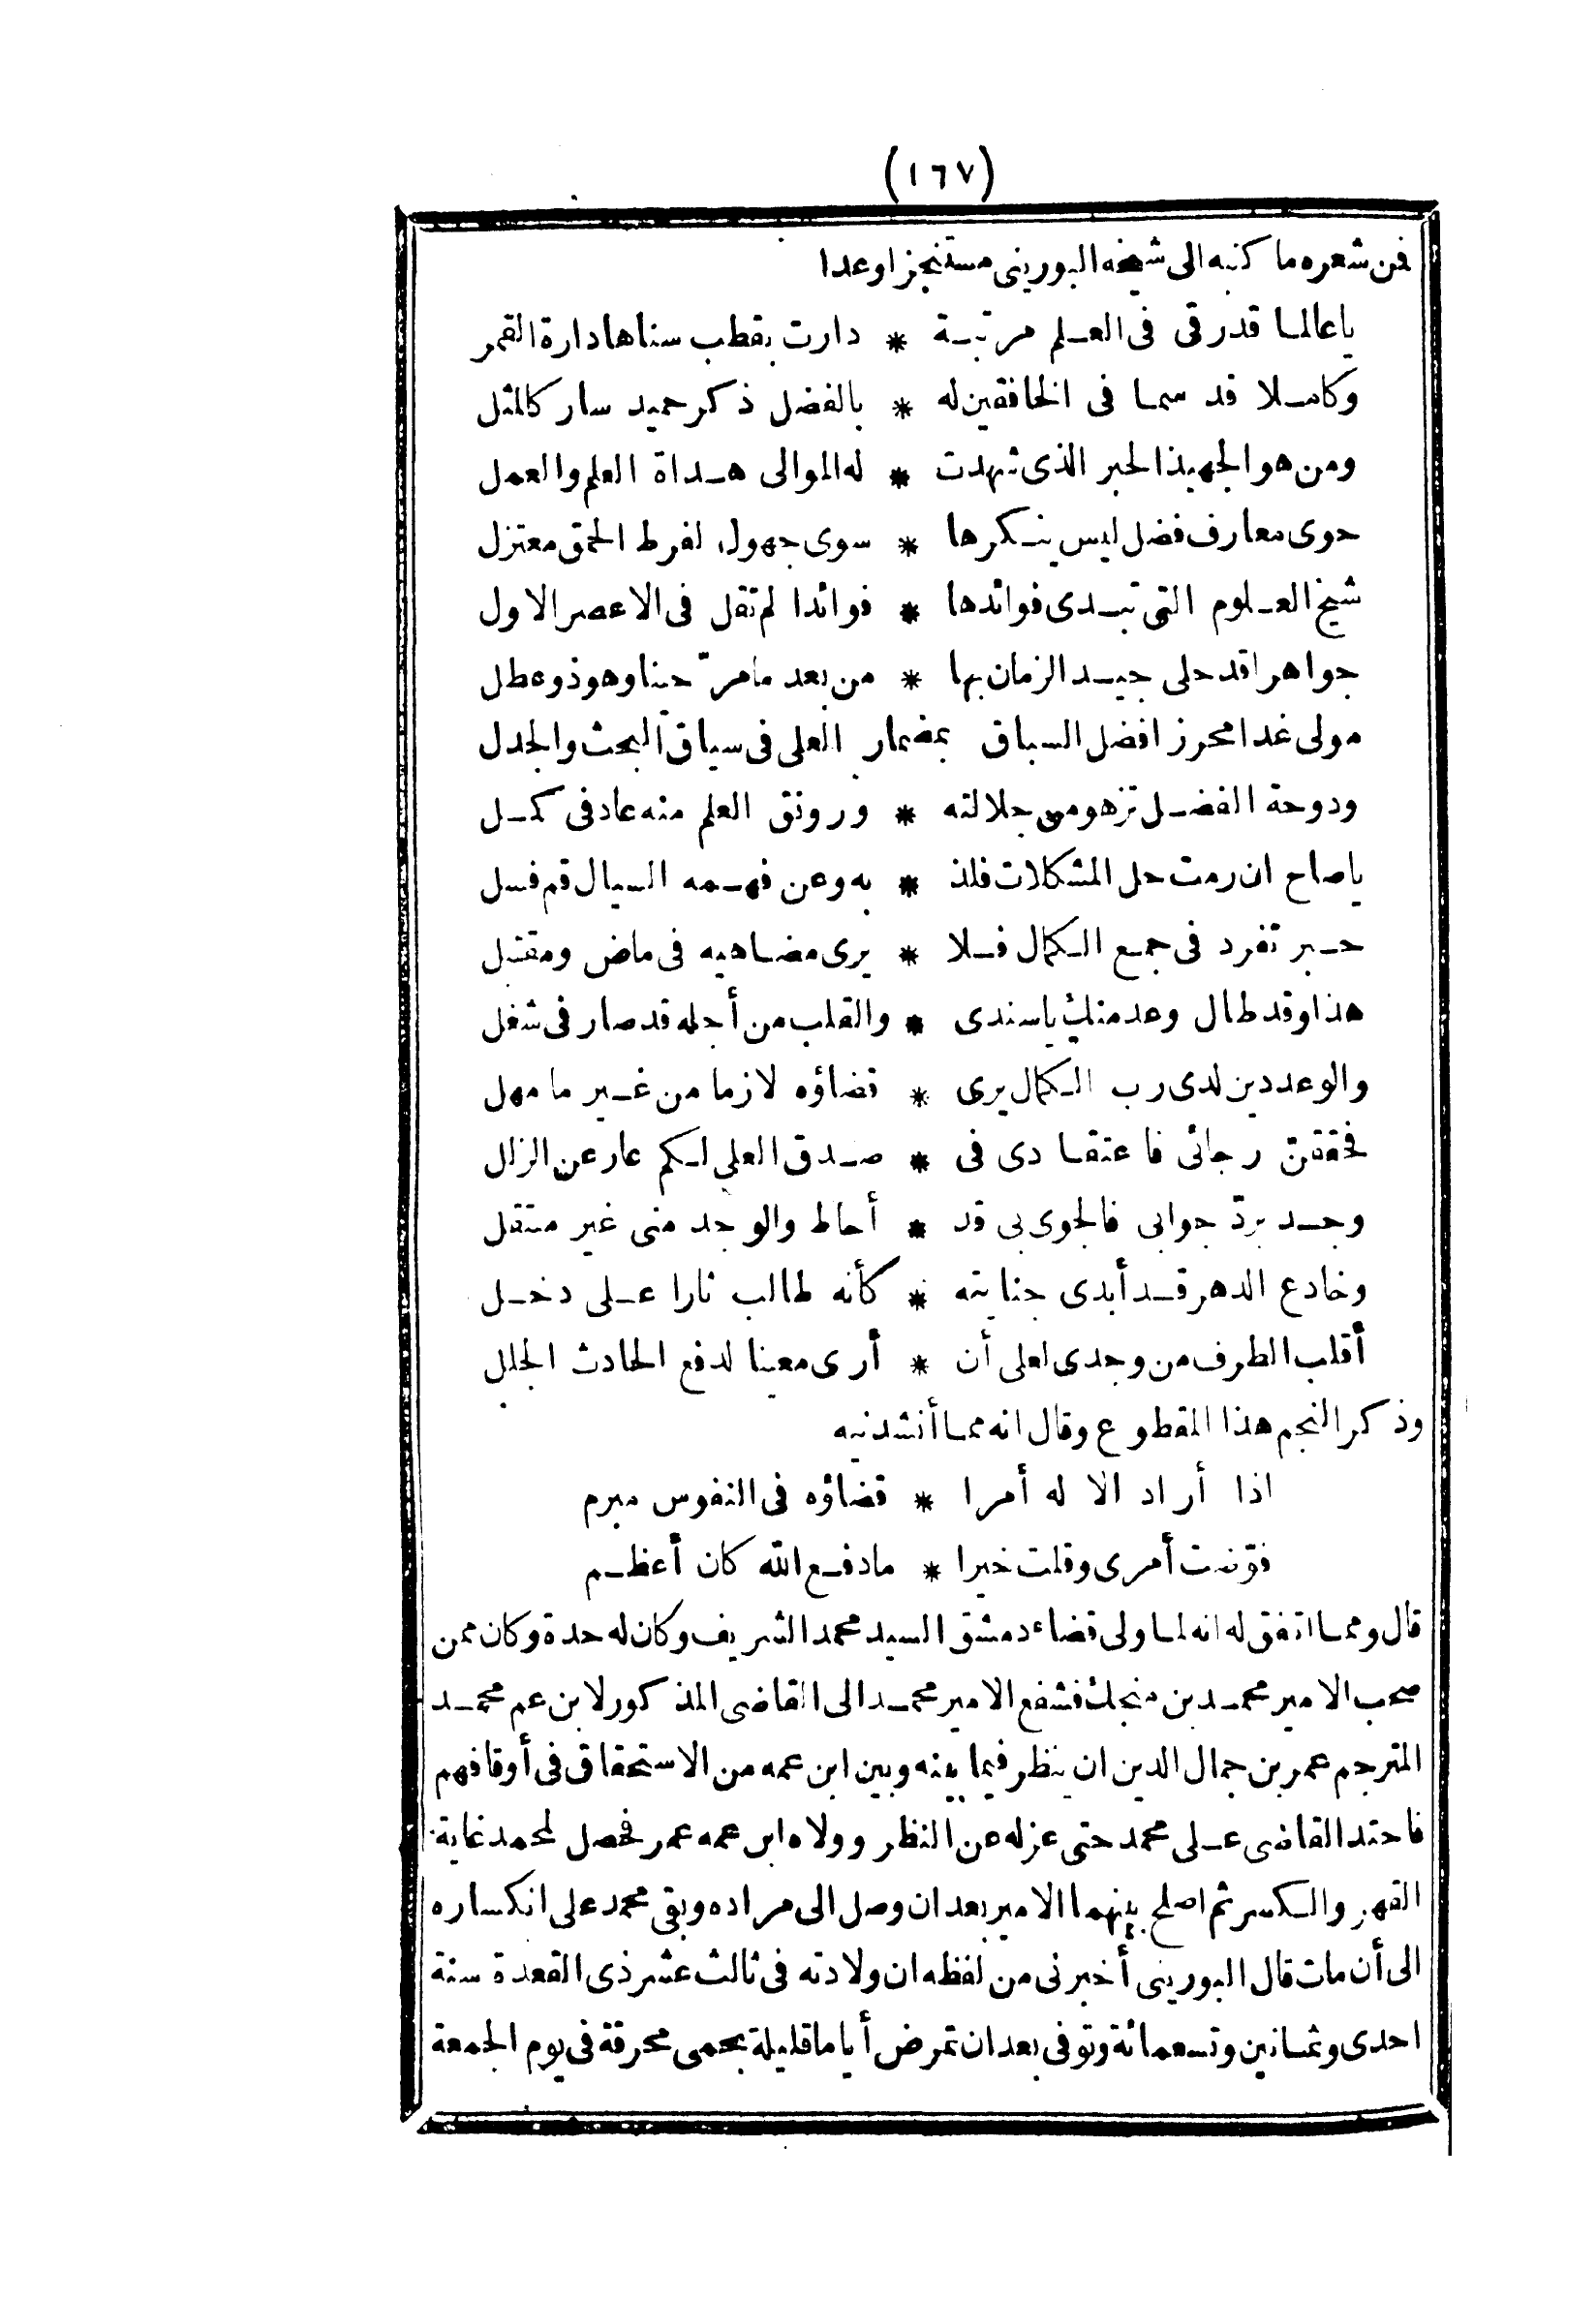 (١٦٧)
فمن شعره ما كتبه الى شيخه البورينى مستنجزا وعدا
يا عالما قد رقى فى العلم مرتبة * دارت بقطب سناها دارة القمر
وكاملا قد سما فى الخافقين له * بالفضل ذكر حميد سار كالمثل
ومن هو الجهبذ الحبر الذى شهدت * له الموالى هداة العلم والعمل
حوى معارف فضل ليس ينكرها * سوى جهول لفرط الحمق معتزل
شيخ العلوم التى تبدى فوائدها * فوائدا لم تقل فى الاعصر الاول
جواهرا قد حلى جيد الزمان بها * من بعد ما مرّ حينا وهو ذو عطل
مولى غدا محرز افضل السباق بمضمار العلى فى سياق البحث والجدل
ودوحة الفضل تزهو من جلالته * ورونق العلم منه عاد فى كمل
يا صاح ان رمت حل المشكلات فلذ * به وعن فهمه السيال قم فسل
حبر تفرد فى جمع الكمال فلا * يرى مضاهيه فى ماض ومقتبل
هذا وقد طال وعد منك يا سندى * والقلب من أجله قد صار فى شغل
والوعد دين لدى رب الكمال يرى * قضاؤه لازما من غير ما مهل
فحققن رجائى فاعتقادى فى * صدق العلى لكم عار عن الزلل
وجد بردّ جوابى فالجوى بى قد * أحاط والوجد منى غير منتقل
وخادع الدهر قد أبدى جنايته * كأنه طالب ثارا على دخل
أقلب الطرف من وجدى لعلى أن * أرى معينا لدفع الحادث الجلل
وذكر النجم هذا المقطوع وقال انه مما أنشدنيه
اذا أراد الاله أمرا * قضاؤه فى النفوس مبرم
فوّضت أمرى وقلت خيرا * ما دفع الله كان أعظم
قال ومما اتفق له انه لما ولى قضاء دمشق السيد محمد الشريف وكان له حدة وكان ممن
صحب الامير محمد بن منجك فشفع الامير محمد الى القاضى المذكور لابن عم محمد
المترجم عمر بن جمال الدين ان ينظر فيما بينه وبين ابن عمه من الاستحقاق فى أوقافهم
فاحتد القاضى على محمد حتى عزله عن النظر وولاه ابن عمه عمر فحصل لمحمد غاية
القهر والكسر ثم اصلح بينهما الامير بعد ان وصل الى مراده وبقى محمد على انكساره
الى أن مات قال البورينى أخبرنى من لفظه ان ولادته فى ثالث عشر ذى القعدة سنة
احدى وثمانين وتسعمائة وتوفى بعد ان تمرض أياما قليلة بحمى محرقة فى يوم الجمعة